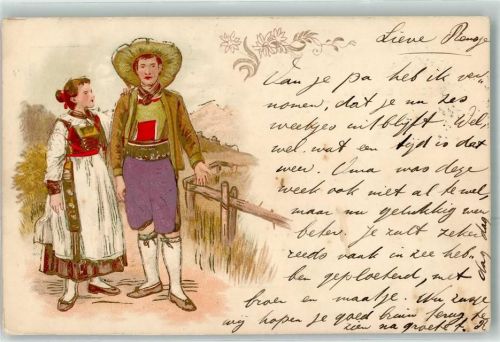 Lieve
Van je pa heb ik ver-
nomen, dat je nu zes
weekjes uitblijft. Wel,
wel wat een tijd is dat
weer. Oma was deze
week ook niet al te wel,
maar nu gelukkig weer
beter. Je zult zeker
reeds vaak in zee heb-
ben geploeterd, met
broer en maatje. Nu zusje
wij hopen je goed bruin terug te
zien na groeten
dag dag